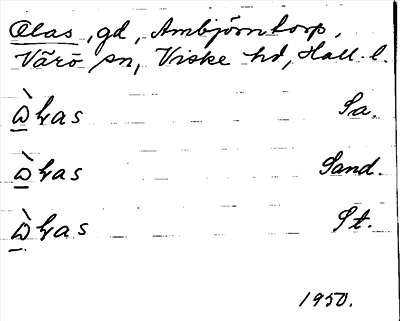 Olas, gd, Ambjörntorp,
Värö sn, Viske hd, Hall. l.
Sa.
Sand.
St.
1950.